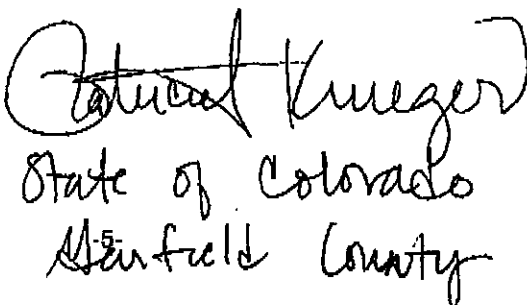 Patricia Krueger
State of Colorado
Garfield County
-5-